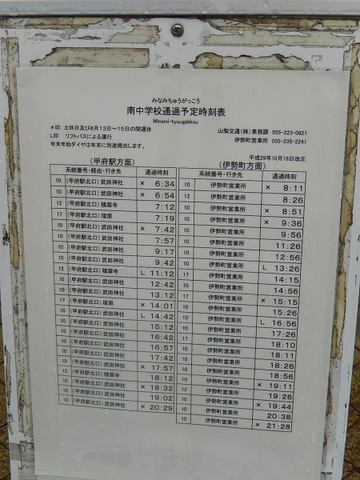 みなみちゅうがっこう
南中学校通過予定時刻表
Minami-tyuugakkou
×印 土休日及び8月13日~15日の間運休
L印 リフトバスによる運行
年末年始ダイヤは年末に別途掲出します。
山梨交通(株)業務課 055-223-0821
伊勢町営業所 055-235-2241
平成28年10月16日改正
(甲府駅方面)
系統番号・経由・行き先 通過時刻
10 (甲府駅北口)武田神社 × 6:34
10 (甲府駅北口)武田神社 × 6:54
12 (甲府駅北口)積翠寺 7:12
17 (甲府駅北口)塩部 7:19
10 (甲府駅北口)武田神社 × 7:42
10 (甲府駅北口)武田神社 7:57
10 (甲府駅北口)武田神社 9:17
10 (甲府駅北口)武田神社 9:42
12 (甲府駅北口)積翠寺 L 11:12
10 (甲府駅北口)武田神社 12:42
10 (甲府駅北口)武田神社 13:12
17 (甲府駅北口)塩部 × 14:01
10 (甲府駅北口)武田神社 L 14:42
10 (甲府駅北口)武田神社 15:12
10 (甲府駅北口)武田神社 16:42
10 (甲府駅北口)武田神社 16:57
10 (甲府駅北口)武田神社 17:42
17 (甲府駅北口)塩部 × 17:57
12 (甲府駅北口)積翠寺 18:12
10 (甲府駅北口)武田神社 × 18:32
10 (甲府駅北口)武田神社 19:02
10 (甲府駅北口)武田神社 × 20:29
(伊勢町方面)
系統番号・行き先 通過時刻
10 伊勢町営業所 × 8:11
12 伊勢町営業所 8:26
伊勢町営業所 × 8:51
伊勢町営業所 × 9:36
10 伊勢町営業所 9:56
10 伊勢町営業所 11:26
伊勢町営業所 12:56
伊勢町営業所 L 13:26
17 伊勢町営業所 14:15
10 伊勢町営業所 14:56
17 伊勢町営業所 × 15:15
10 伊勢町営業所 15:26
10 伊勢町営業所 L 16:56
10 伊勢町営業所 17:26
17 伊勢町営業所 18:10
伊勢町営業所 18:11
10 伊勢町営業所 18:26
10 伊勢町営業所 18:56
伊勢町営業所 × 19:11
伊勢町営業所 19:26
伊勢町営業所 × 19:44
10 伊勢町営業所 20:38
伊勢町営業所 × 21:28